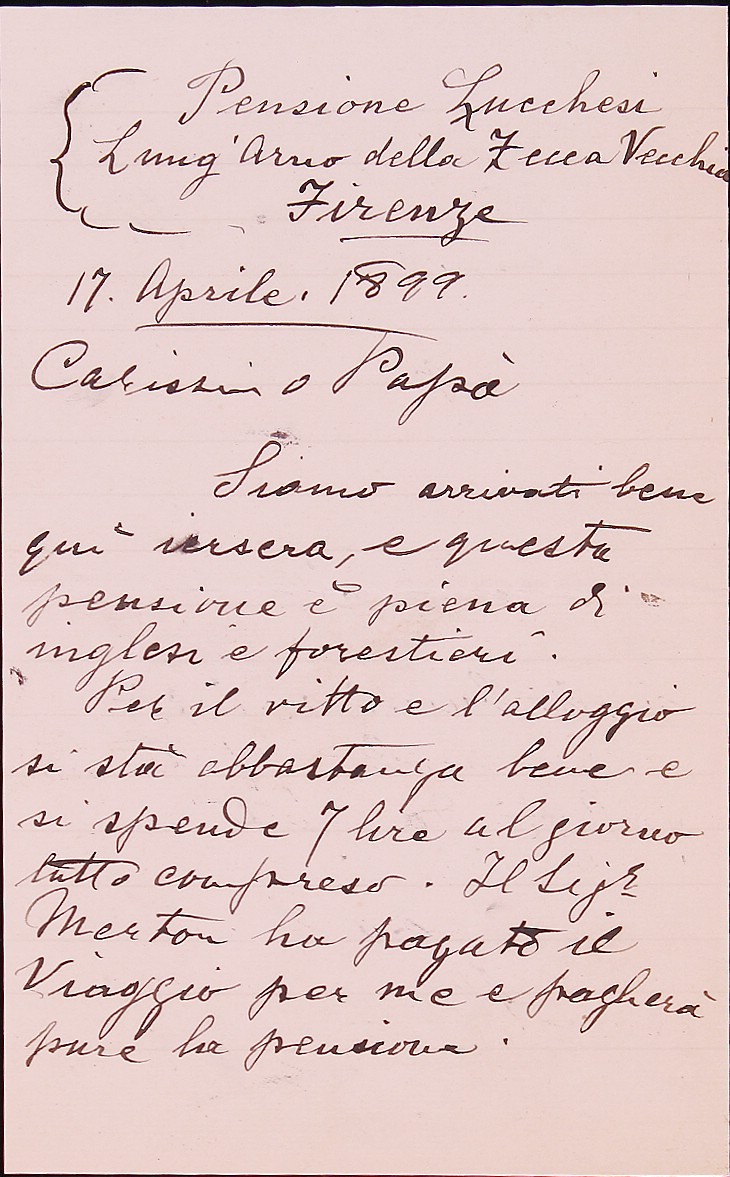 Pensione Lucchesi
Lung'Arno della Zecca Vecchia
Firenze
17. Aprile. 1899.
Carissimo Papà
Siamo arrivati bene
quì iersera, e questa
pensione è piena di
inglesi e forestieri.
Per il vitto e l'alloggio
si stà abbastanza bene e
si spende 7 lire al giorno
tutto compreso. Il Sigr
Merton ha pagato il
Viaggio per me e pagherà
pure la pensione.